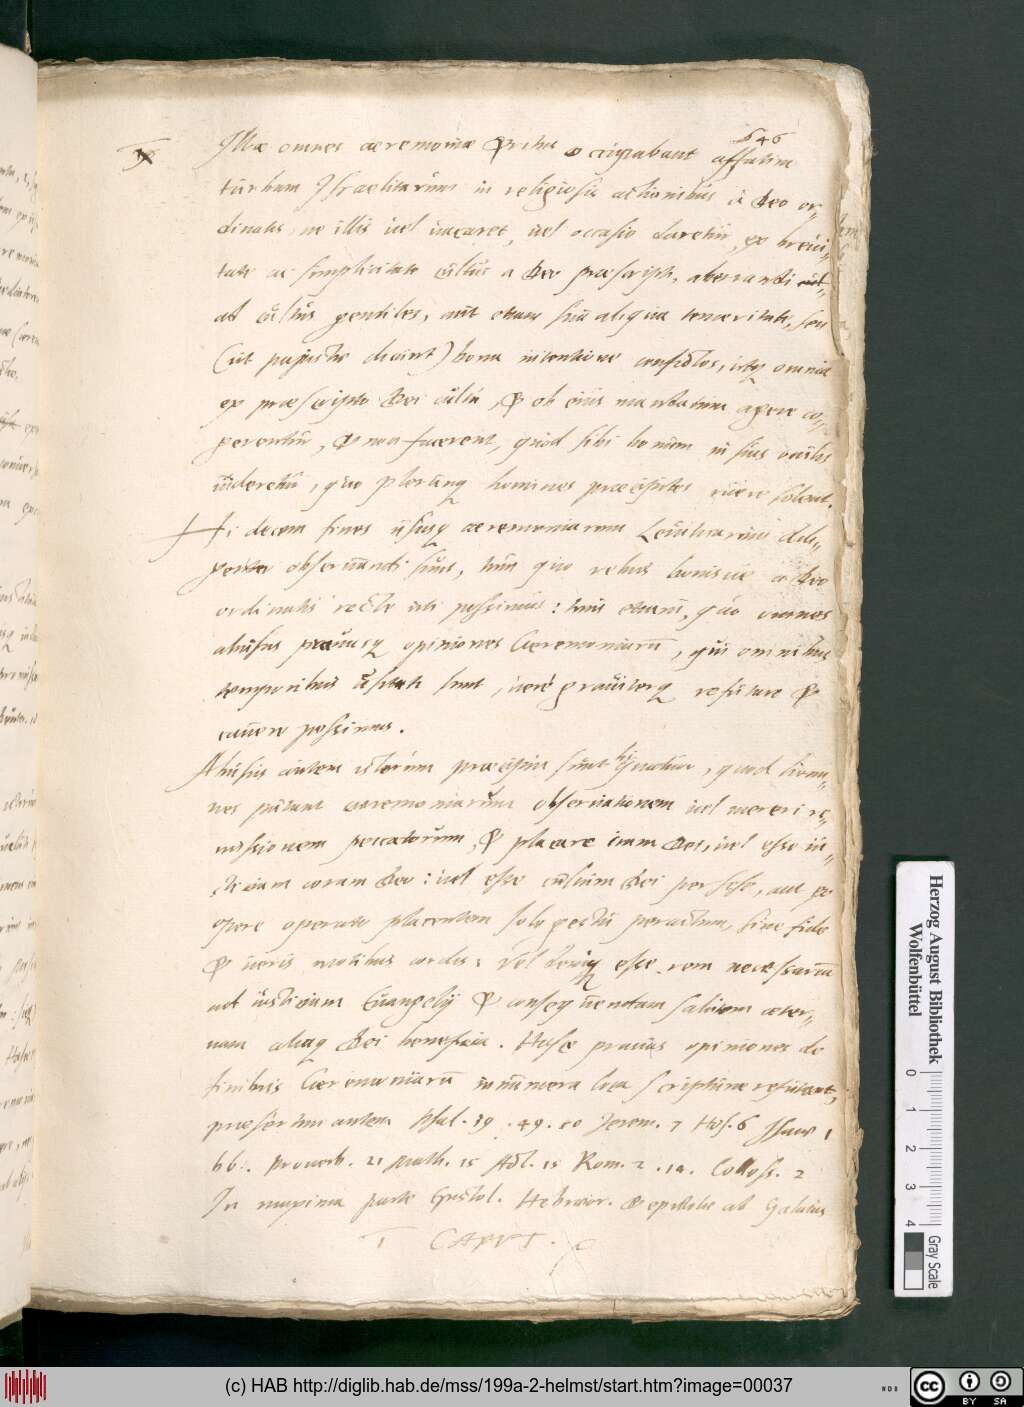 646
Illae omnes caeremoniae & ritus occupabant assidue
turbam Israelitarum in religiosis actionibus à Deo or-
dinatis, ne illis uel uacaret, uel occasio daretur, ex breui-
tate ac simplicitate cultus a Deo praescripti, aberrandi
ad cultus gentiles, aut etiam sua aliqua temeritate, seu
(ut papistae dicunt) bona intentione confictos, utq omnia
ex praescripto Dei cultu, & ob eius mandatum agere co-
gerentur, & non facerent, quod sibi bonum in suis oculis
uideretur, quo plerunq homines praecipites ruere solent.
Hi decem fines ususq caeremoniarum Leuiticarum dili-
genter obseruandi sunt, tum quo rebus bonis a Deo
ordinatis recte uti possimus: tum etiam, quo omnes
abusus prauasq opiniones Caeremoniarum, qui omnibus
temporibus usitati sunt, uere grauiterq refutare &
cauere possimus.
Abusus autem istarum praecipui sunt quatuor, quod homi-
nes putant caeremoniarum obseruationem uel mereri re-
missionem peccatorum, & placare iram Dei, uel esse iu-
sticiam coram Deo: uel esse cultum Dei per sese, aut ex
opere operato placentem solo gestu peractum, sine fide
& ueris motibus cordis: Vel deniq esse rem necessariam
ad iusticiam Euangelij & consequendam salutem aeter-
nam aliaq Dei beneficia. Hasce prauas opiniones de
finibus Caeremoniarum innumera loca scripturae refutant,
praesertim autem Psal. 19. 49. 50 Jerem. 7 Hos. 6 Jsaiae 1
66. Prouerb. 21 Math. 15 Act. 15 Rom. 2. 14. Coloss. 2
In maxima parte Epistol. Hebraeor. & epistolae ad Galatas
CAPVT.
Herzog August Bibliothek
Wolfenbüttel
0 1 2 3 4
Gray Scale
(c) HAB http://diglib.hab.de/mss/199a-2-helmst/start.htm?image=00037
cc BY SA